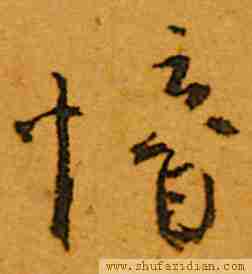 愔
www.shufazidian.com